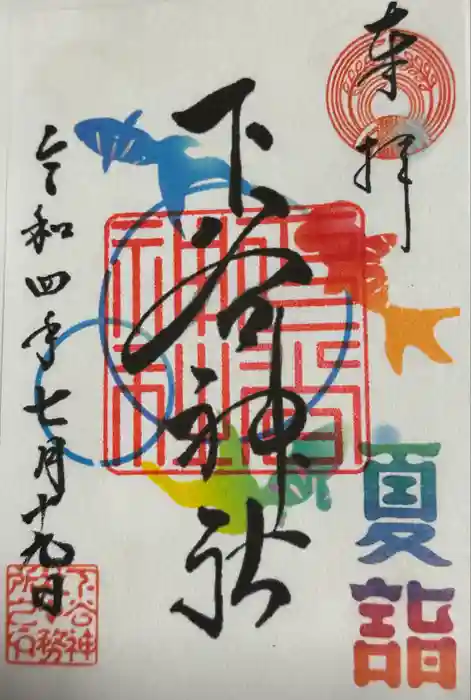 奉拝
下谷神社
夏詣
令和四年七月十九日
下谷神社
下谷神
社社務
所之印